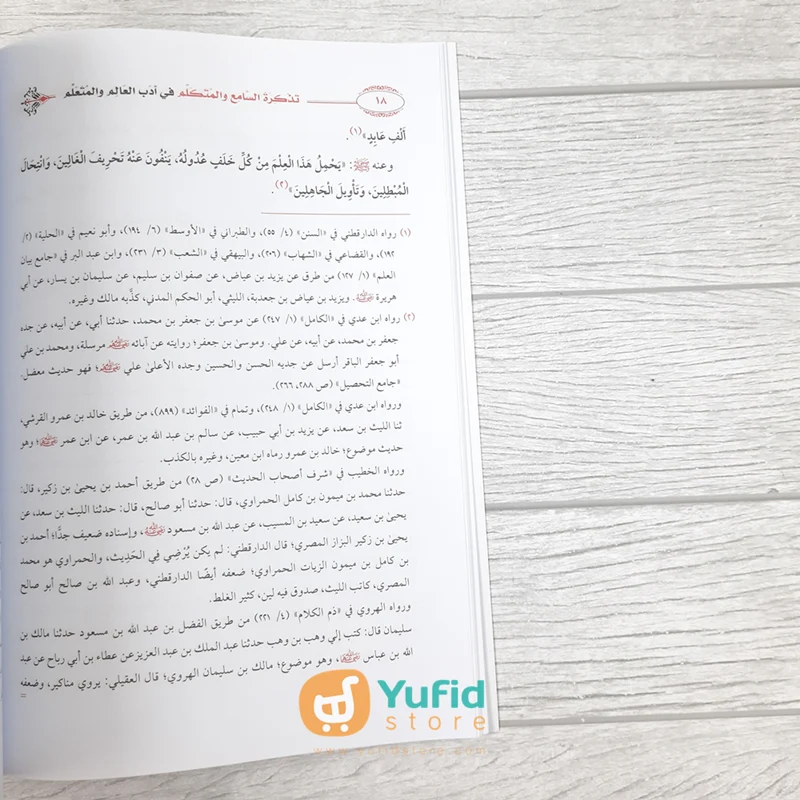 ١٨
تذكرة السامع والمتكلم في أدب العالم والمتعلم
أَلْفِ عَابِدٍ»(١).
وعنه ﷺ: «يَحْمِلُ هَذَا الْعِلْمَ مِنْ كُلِّ خَلَفٍ عُدُولُهُ، يَنْفُونَ عَنْهُ تَحْرِيفَ الْغَالِينَ، وَانْتِحَالَ
الْمُبْطِلِينَ، وَتَأْوِيلَ الْجَاهِلِينَ»(٢).
(١) رواه الدارقطني في «السنن» (٤/ ٥٥)، والطبراني في «الأوسط» (٦/ ١٩٤)، وأبو نعيم في «الحلية» (٢/
١٩٢)، والقضاعي في «الشهاب» (٢٠٦)، والبيهقي في «الشعب» (٣/ ٢٣١)، وابن عبد البر في «جامع بيان
العلم» (١/ ١٢٧) من طرق عن يزيد بن عياض، عن صفوان بن سليم، عن سليمان بن يسار، عن أبي
هريرة رضي الله عنه. ويزيد بن عياض بن جعدبة، الليثي، أبو الحكم المدني، كذَّبه مالك وغيره.
(٢) رواه ابن عدي في «الكامل» (١/ ٢٤٧) عن موسىٰ بن جعفر بن محمد، حدثنا أبي، عن أبيه، عن جده
جعفر بن محمد، عن أبيه، عن علي. وموسىٰ بن جعفر؛ روايته عن آبائه مرسلة، ومحمد بن علي
أبو جعفر الباقر أرسل عن جديه الحسن والحسين وجده الأعلىٰ علي؛ فهو حديث معضل.
«جامع التحصيل» (ص ٢٨٨، ٢٦٦).
ورواه ابن عدي في «الكامل» (١/ ٢٤٨)، وتمام في «الفوائد» (٨٩٩)، من طريق خالد بن عمرو القرشي،
ثنا الليث بن سعد، عن يزيد بن أبي حبيب، عن سالم بن عبد الله بن عمر، عن ابن عمر؛ وهو
حديث موضوع؛ خالد بن عمرو رماه ابن معين، وغيره بالكذب.
ورواه الخطيب في «شرف أصحاب الحديث» (ص ٢٨) من طريق أحمد بن يحيىٰ بن زكير، قال:
حدثنا محمد بن ميمون بن كامل الحمراوي، قال: حدثنا أبو صالح، قال: حدثنا الليث بن سعد، عن
يحيىٰ بن سعيد، عن سعيد بن المسيب، عن عبد الله بن مسعود، وإسناده ضعيف جدًّا؛ أحمد بن
يحيىٰ بن زكير البزاز المصري؛ قال الدارقطني: لم يكن يُرْضِي فِي الحَدِيث، والحمراوي هو محمد
بن كامل بن ميمون الزيات الحمراوي؛ ضعفه أيضًا الدارقطني، وعبد الله بن صالح أبو صالح
المصري، كاتب الليث، صدوق فيه لين، كثير الغلط.
ورواه الهروي في «ذم الكلام» (٤/ ٢٢١) من طريق الفضل بن عبد الله بن مسعود حدثنا مالك بن
سليمان قال: كتب إلي وهب بن وهب حدثنا عبد الملك بن عبد العزيزعن عطاء بن أبي رباح عن عبد
الله بن عباس، وهو موضوع؛ مالك بن سليمان الهروي؛ قال العقيلي: يروي مناكير، وضعفه
=
Yufid
store